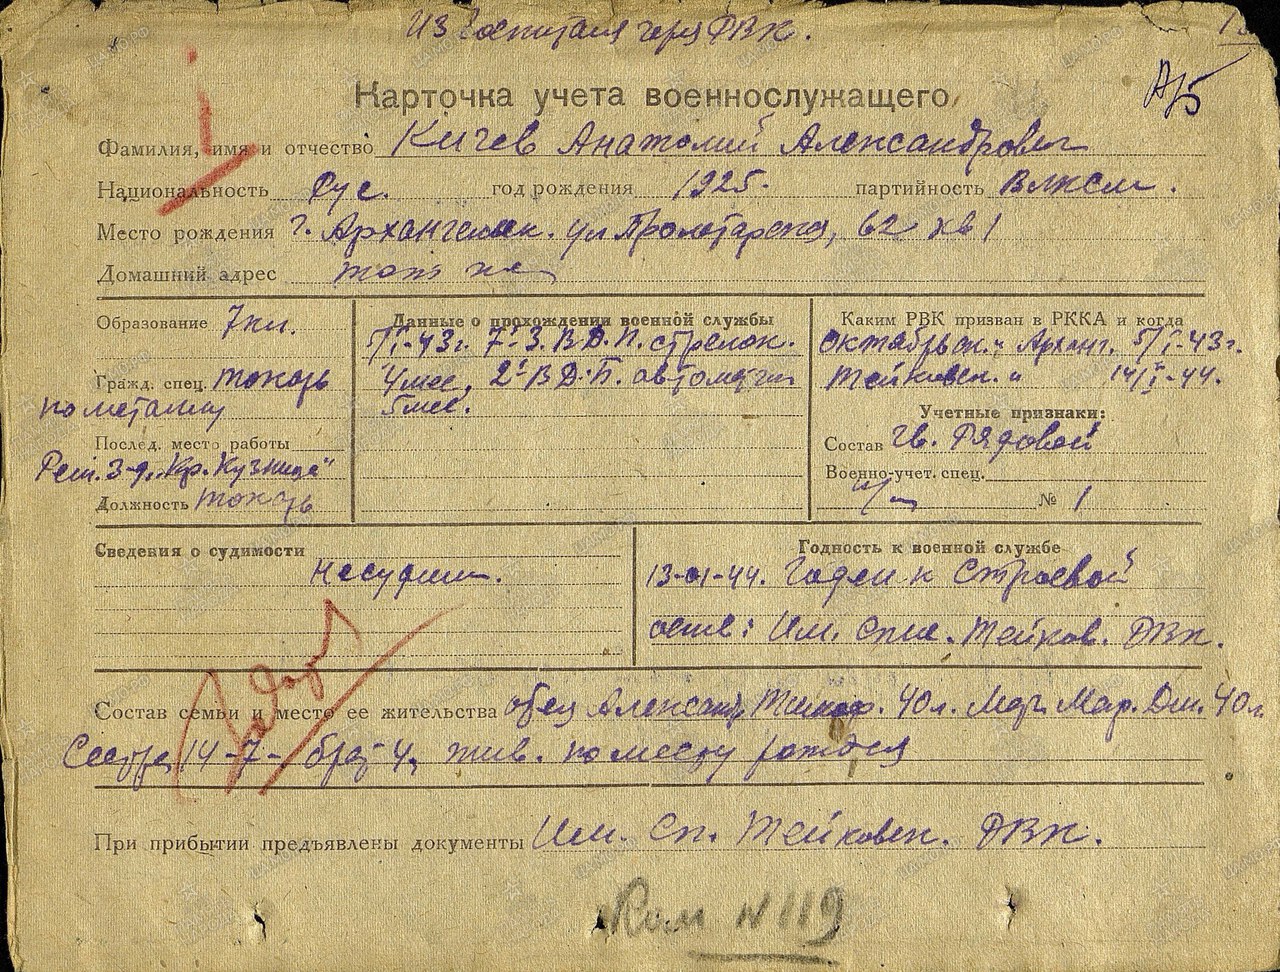 Из госпиталя через РВК.
Карточка учета военнослужащего
Фамилия, имя и отчество Кичев Анатолий Александрович
Национальность Рус. год рождения 1925. партийность ВЛКСМ.
Место рождения г. Архангельск. ул Пролетарская, 62 кв 1
Домашний адрес то же
Образование 7 кл.
Гражд. спец. токарь
по металлу
Послед. место работы
Рем. З-д. „Кр. Кузница"
Должность токарь
Данные о прохождении военной службы
5/I-43г. 7. З.В.Д.П. стрелок.
4 мес, 2. В.Д.П. автоматчик
5 мес.
Каким РВК призван в РККА и когда
Октябрьск. Арханг. 5/I-43г.
Тейковск. 14/I-44.
Учетные признаки:
Состав Гв. Рядовой
Военно-учет. спец.
№ 1
Сведения о судимости
Несудим.
Годность к военной службе
13-01-44. Годен к строевой
осв: Им. Спис. Тейков. РВК.
Состав семьи и место ее жительства отец Александр 40 л. Мар. 40 л
Сестра 14-7- брат 4, жив. по месту рожден
При прибытии предъявлены документы Им. Сп. Тейковск. РВК.
N 119